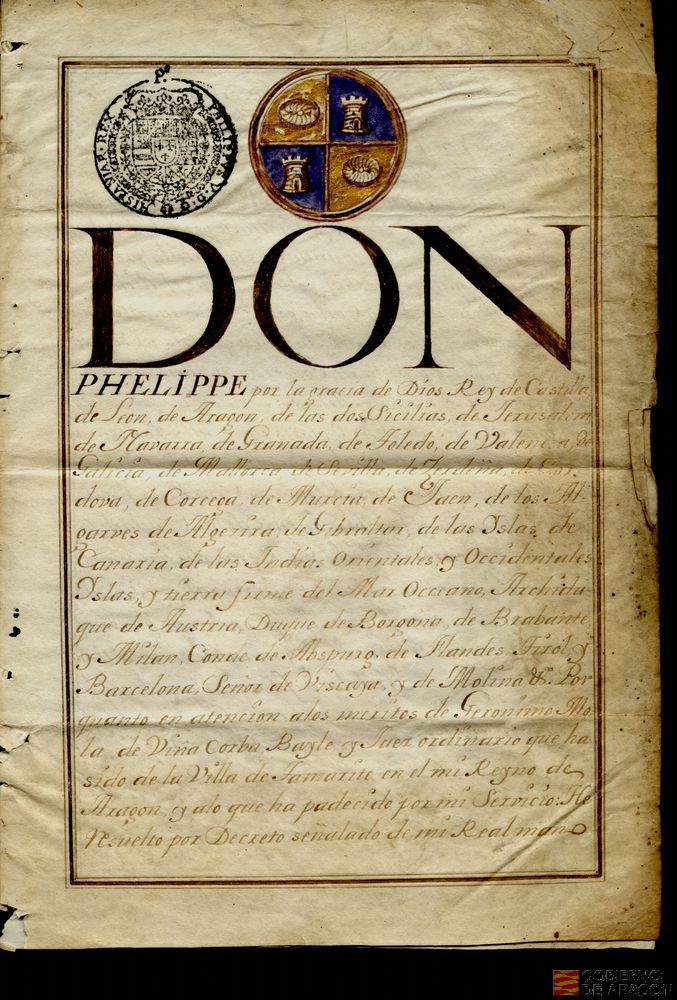 P.º
PHILIPPUS V D G HISPANIAR REX
DON
PHELIPPE por la gracia de Dios Rey de Castilla,
de Leon, de Aragon, de las dos Sicilias, de Jerusalem
de Navarra, de Granada, de Toledo, de Valencia, de
Galicia, de Mallorca de Sevilla, de Zerdeña, de Cor-
dova, de Corcega, de Murcia, de Jaen, de los Al-
garves de Algecira, de Gibraltar, de las Yslas de
Canaria, de las Indias Orientales, y Occidentales
Yslas, y tierra firme del Mar Occeano, Archidu-
que de Austria, Duque de Borgoña, de Brabante
y Milan, Conde de Abspurg, de Flandes, Tiról, y
Barcelona, Señor de Viscaya, y de Molina &. Por
quanto en atencion alos meritos de Geronimo Mo-
la, de Viña Corba Bayle y Juez ordinario que ha
sido de la Villa de Tamarite en el mi Reyno de
Aragon, y alo que ha padecido por mi Servicio: He
resuelto por Decreto señalado de mi Real mano
GOBIERNO
DE ARAGON